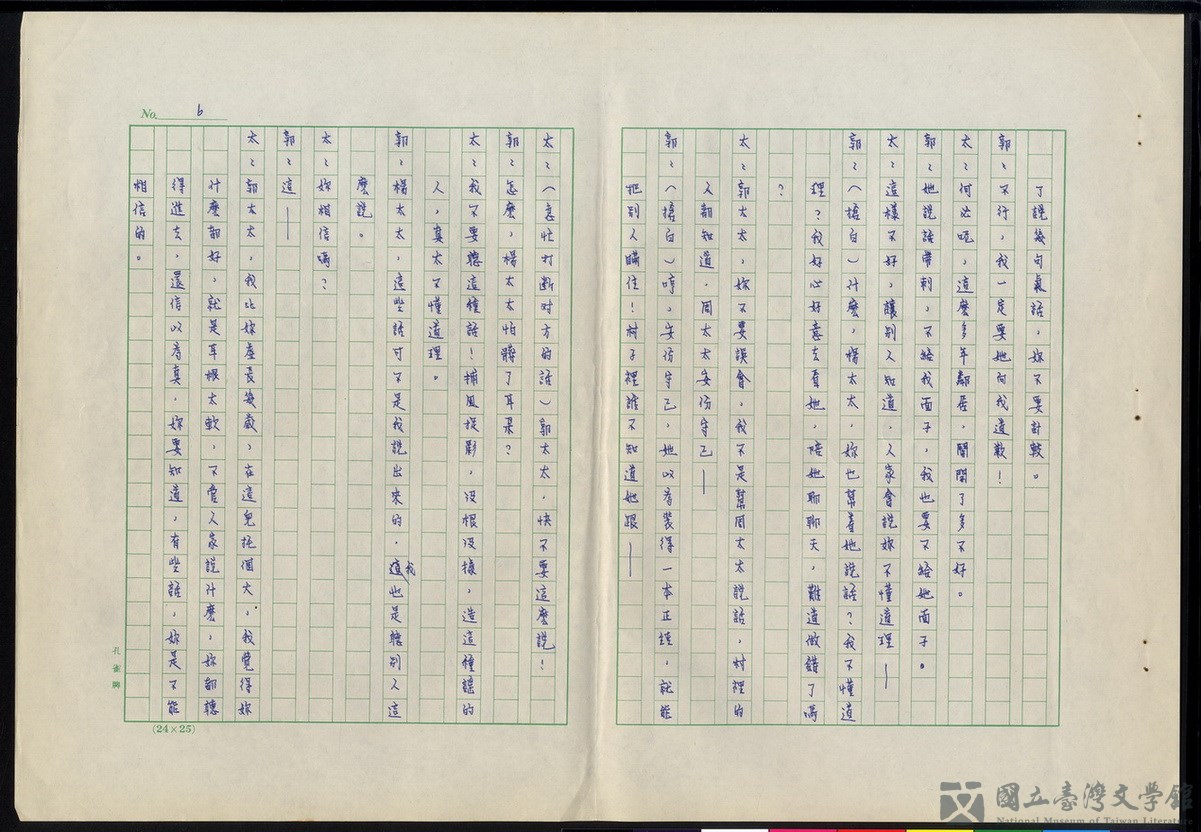 No. 6
了說幾句氣話，妳不要計較。
郭：不行，我一定要她向我道歉！
太：何必呢，這麼多年鄰居，鬧開了多不好。
郭：她說話帶刺，不給我面子，我也要不給她面子。
太：這樣不好，讓別人知道，人家會說妳不懂道理——
郭：（搶白）什麼，楊太太，妳也幫着她說話？我不懂道
理？我好心好意去看她，陪她聊聊天，難道做錯了嗎
？
太：郭太太，妳不要誤會，我不是幫周太太說話，村裡的
人都知道，周太太安份守己——
郭：（搶白）哼，安份守己，她以為裝得一本正經，就能
把別人瞞住！村子裡誰不知道她跟——
太：（急忙打斷对方的話）郭太太，快不要這麼說！
郭：怎麼，楊太太怕髒了耳朵？
太：我不要聽這種話！捕風捉影，沒根沒據，造這種謠的
人，真太不懂道理。
郭：楊太太，這些話可不是我說出來的，我也是聽別人這
麼說。
太：妳相信嗎？
郭：這——
太：郭太太，我比妳虛長幾歲，在這兒托個大，我覺得妳
什麼都好，就是耳根太軟，不管人家說什麼，妳都聽
得進去，還信以為真，妳要知道，有些話，妳是不能
相信的。
孔雀牌
(24×25)
國立臺灣文學館
National Museum of Taiwan Literature